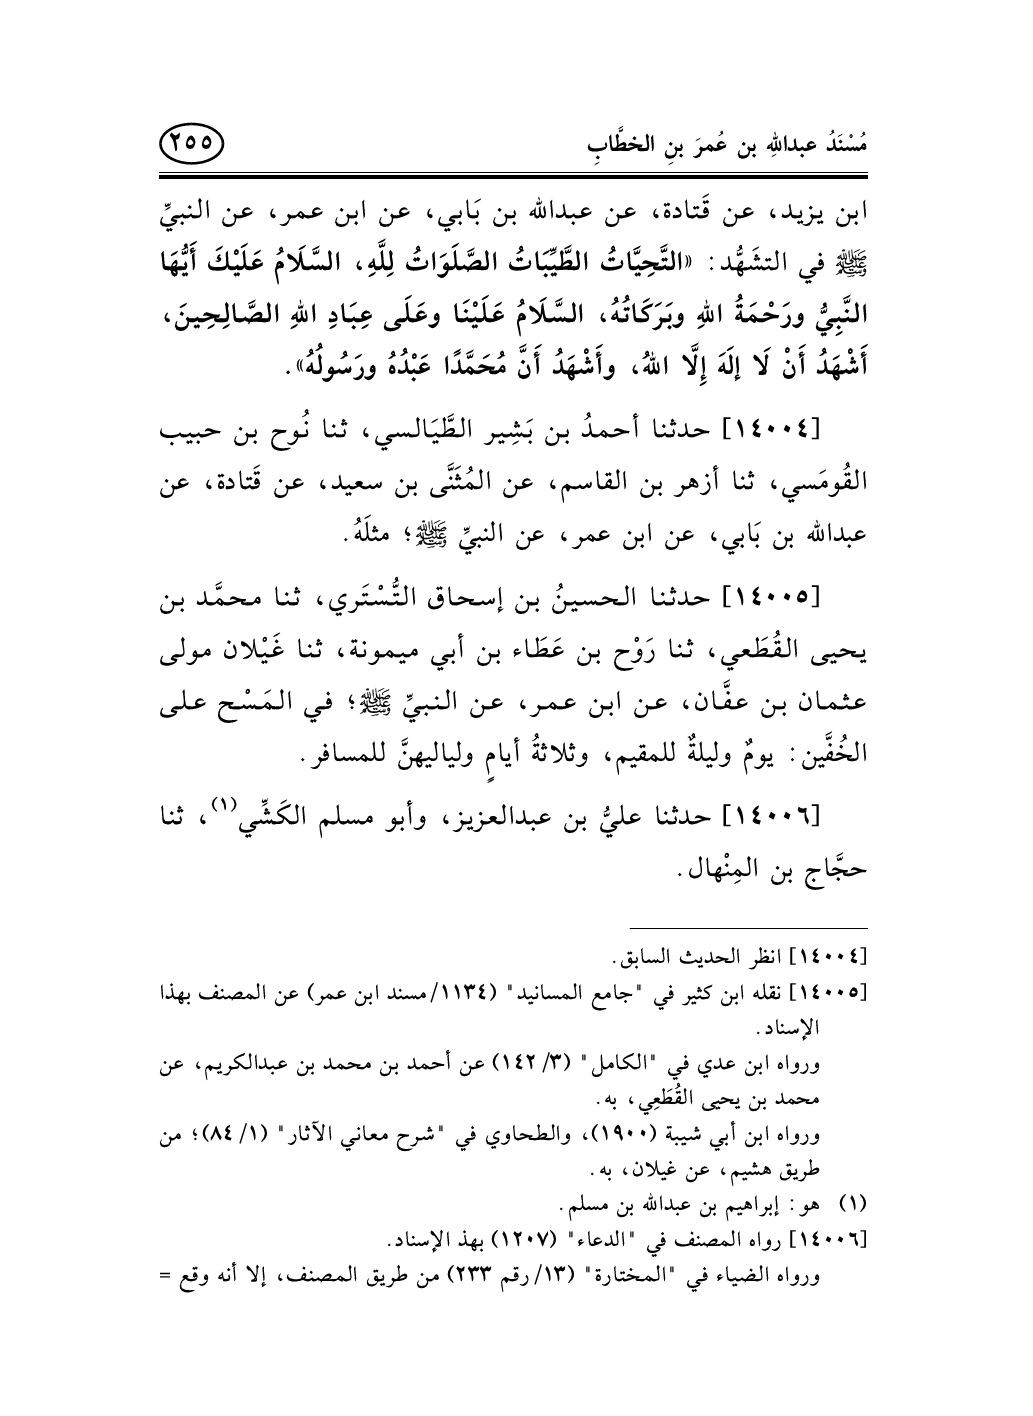 مُسْنَدُ عبدالله بن عُمرَ بنِ الخطَّابِ ٢٥٥
ابن يزيد، عن قَتادة، عن عبدالله بن بَابي، عن ابن عمر، عن النبيِّ
ﷺ في التشَهُّد: «التَّحِيَّاتُ الطَّيِّبَاتُ الصَّلَوَاتُ لِلَّهِ، السَّلَامُ عَلَيْكَ أَيُّهَا
النَّبِيُّ ورَحْمَةُ اللهِ وبَرَكَاتُهُ، السَّلَامُ عَلَيْنَا وعَلَى عِبَادِ اللهِ الصَّالِحِينَ،
أَشْهَدُ أَنْ لَا إلَهَ إِلَّا اللهُ، وأَشْهَدُ أَنَّ مُحَمَّدًا عَبْدُهُ ورَسُولُهُ».
[١٤٠٠٤] حدثنا أحمدُ بن بَشِير الطَّيَالسي، ثنا نُوح بن حبيب
القُومَسي، ثنا أزهر بن القاسم، عن المُثَنَّى بن سعيد، عن قَتادة، عن
عبدالله بن بَابي، عن ابن عمر، عن النبيِّ ﷺ؛ مثلَهُ.
[١٤٠٠٥] حدثنا الحسينُ بن إسحاق التُّسْتَري، ثنا محمَّد بن
يحيى القُطَعي، ثنا رَوْح بن عَطَاء بن أبي ميمونة، ثنا غَيْلان مولى
عثمان بن عفَّان، عن ابن عمر، عن النبيِّ ﷺ؛ في المَسْح على
الخُفَّين: يومٌ وليلةٌ للمقيم، وثلاثةُ أيامٍ ولياليهنَّ للمسافر.
[١٤٠٠٦] حدثنا عليُّ بن عبدالعزيز، وأبو مسلم الكَشِّي(١)، ثنا
حجَّاج بن المِنْهال.
[١٤٠٠٤] انظر الحديث السابق.
[١٤٠٠٥] نقله ابن كثير في "جامع المسانيد" (١١٣٤/مسند ابن عمر) عن المصنف بهذا
الإسناد.
ورواه ابن عدي في "الكامل" (٣/ ١٤٢) عن أحمد بن محمد بن عبدالكريم، عن
محمد بن يحيى القُطَعِي، به.
ورواه ابن أبي شيبة (١٩٠٠)، والطحاوي في "شرح معاني الآثار" (١/ ٨٤)؛ من
طريق هشيم، عن غيلان، به.
(١) هو: إبراهيم بن عبدالله بن مسلم.
[١٤٠٠٦] رواه المصنف في "الدعاء" (١٢٠٧) بهذ الإسناد.
ورواه الضياء في "المختارة" (١٣/ رقم ٢٣٣) من طريق المصنف، إلا أنه وقع =